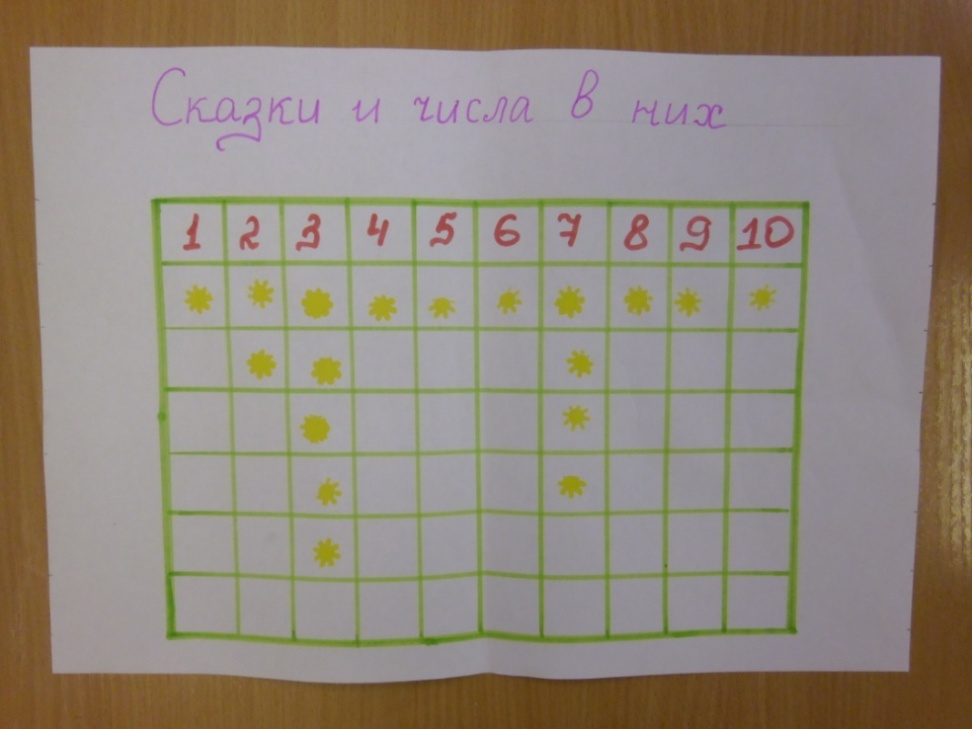 Сказки и числа в них
1 2 3 4 5 6 7 8 9 10